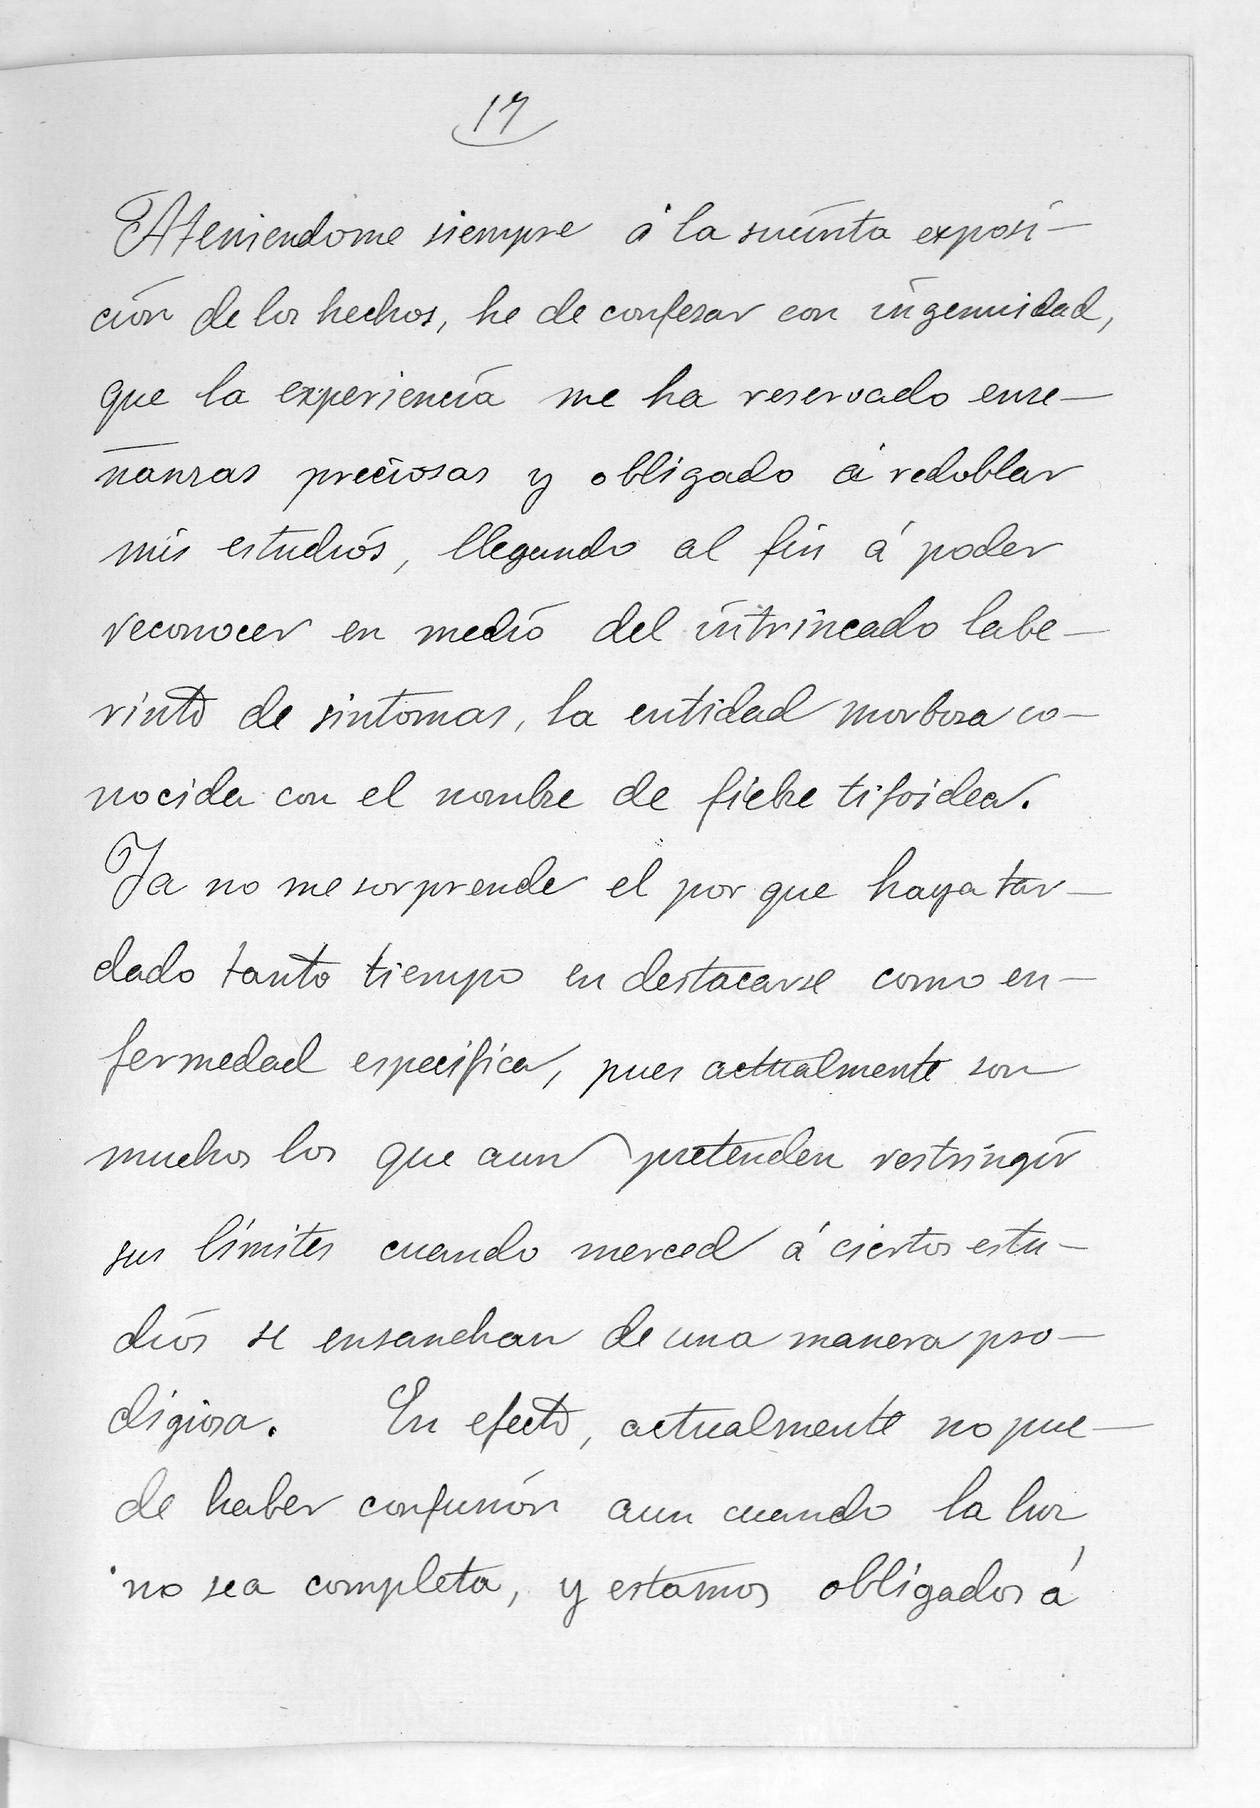 17
Ateniendome siempre á la sucinta exposi-
ción de los hechos, he de confesar con ingenuidad,
que la experiencia me ha reservado ense-
ñanzas preciosas y obligado á redoblar
mis estudios, llegando al fin á poder
reconocer en medio del intrincado labe-
rinto de sintomas, la entidad morbosa co-
nocida con el nombre de fiebre tifoidea.
Ya no me sorprende el por que haya tar-
dado tanto tiempo en destacarse como en-
fermedad especifica, pues actualmente son
muchos los que aun pretenden restringir
sus límites cuando merced á ciertos estu-
dios se ensanchan de una manera pro-
digiosa. En efecto, actualmente no pue-
de haber confusión aun cuando la luz
no sea completa, y estamos obligados á